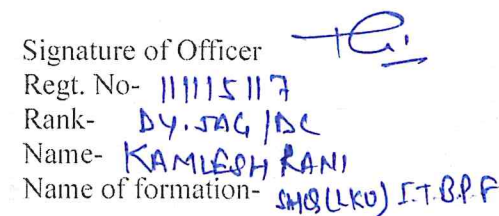 Signature of Officer
Regt. No- 111115117
Rank- DY.JAG/DC
Name- KAMLESH RANI
Name of formation- SHQ(LKO) I.T.B.P.F